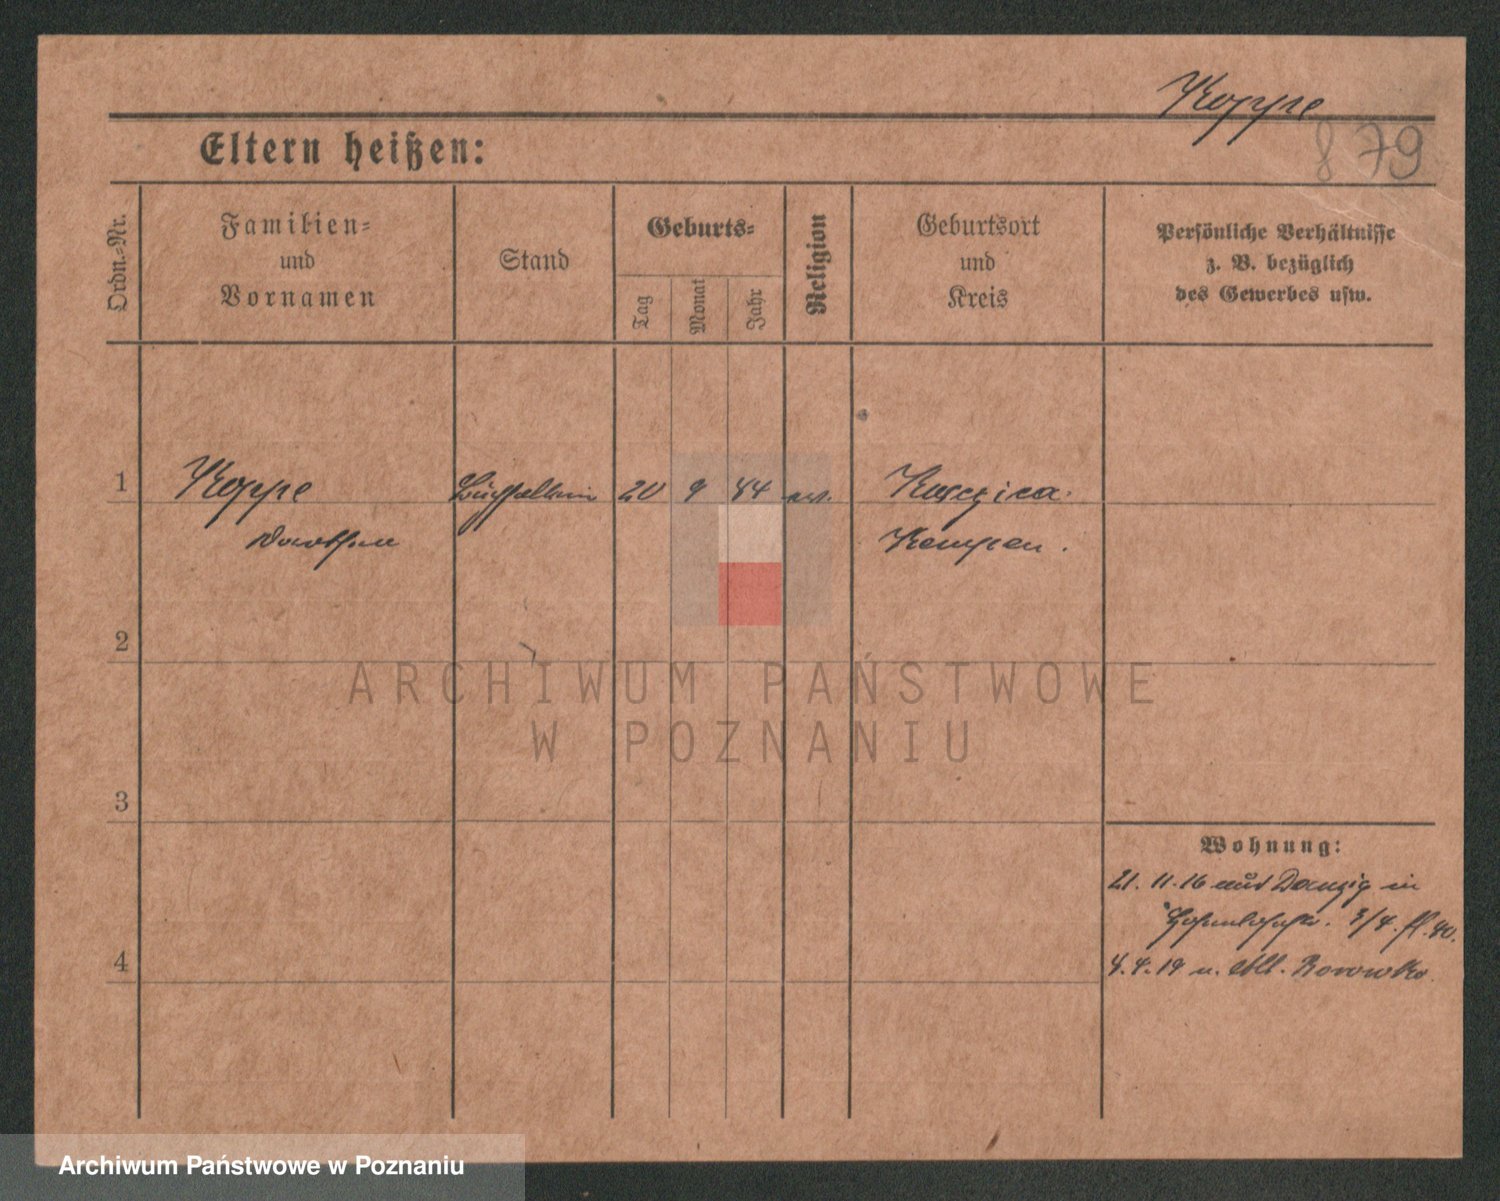 Koppe
879
Eltern heißen:
Ordn.-Nr.
Familien-
und
Vornamen
Stand
Geburts-
Tag
Monat
Jahr
Religion
Geburtsort
und
Kreis
Persönliche Verhältnisse
z. B. bezüglich
des Gewerbes usw.
1
Koppe
20 9 84 ev.
Kempen.
2
3
4
ARCHIWUM PAŃSTWOWE
W POZNANIU
Wohnung:
21. 11. 16 aus Danzig in
3/4.
4. 4. 19 n. Alt. Borowko.
Archiwum Państwowe w Poznaniu